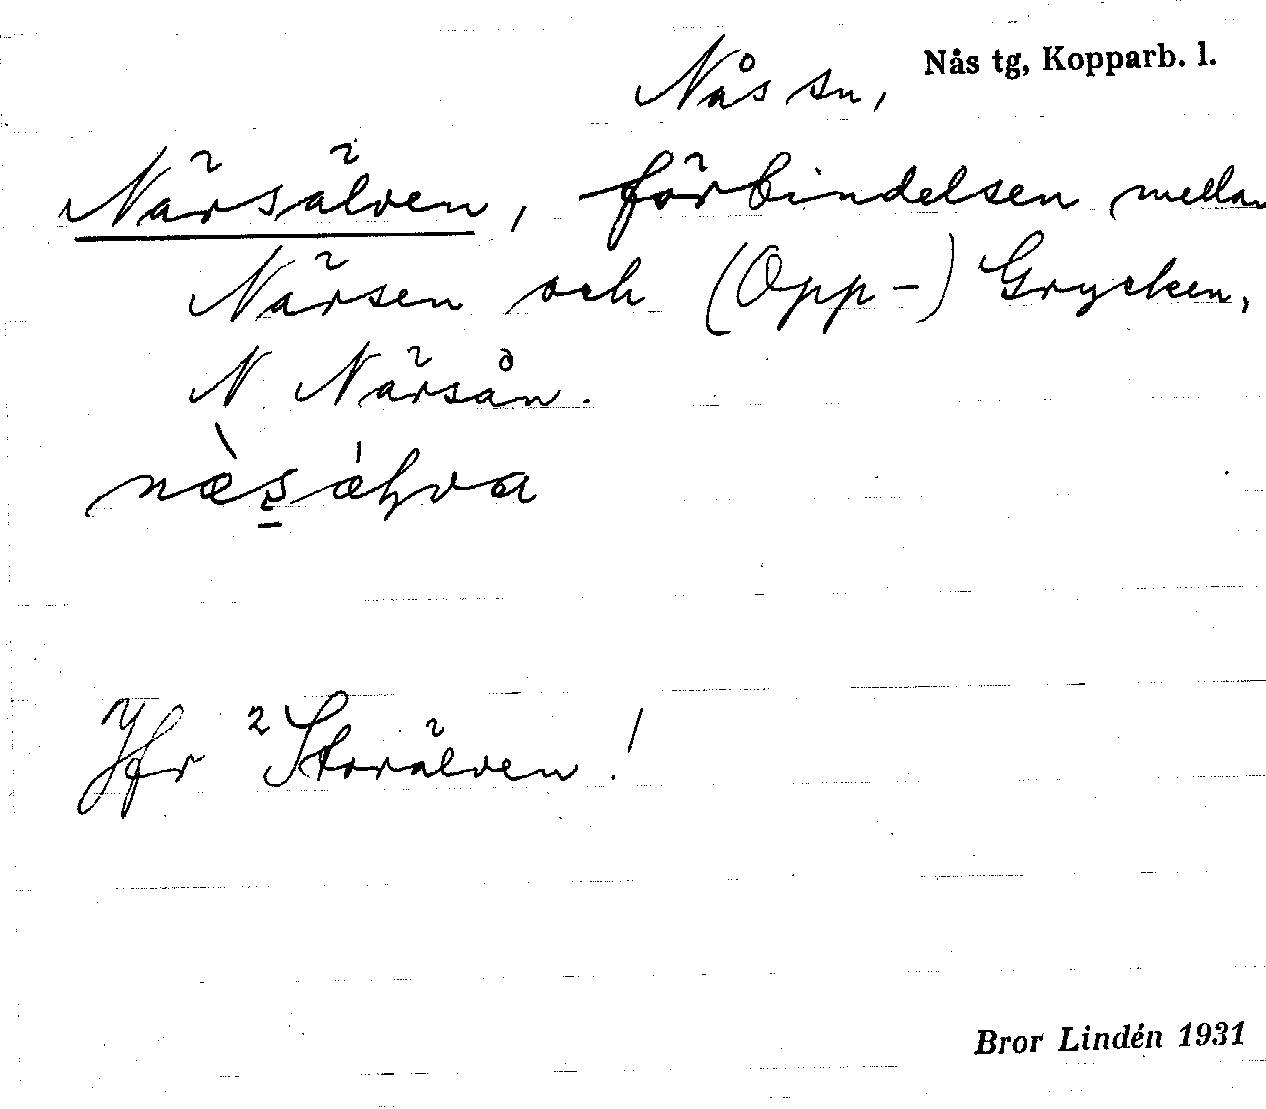 Nås sn, Nås tg, Kopparb. l.
Närsälven, förbindelsen mellan
Närsen och (Opp-) Grycken,
N Närsån.
Jfr ²Storälven!
Bror Lindén 1931